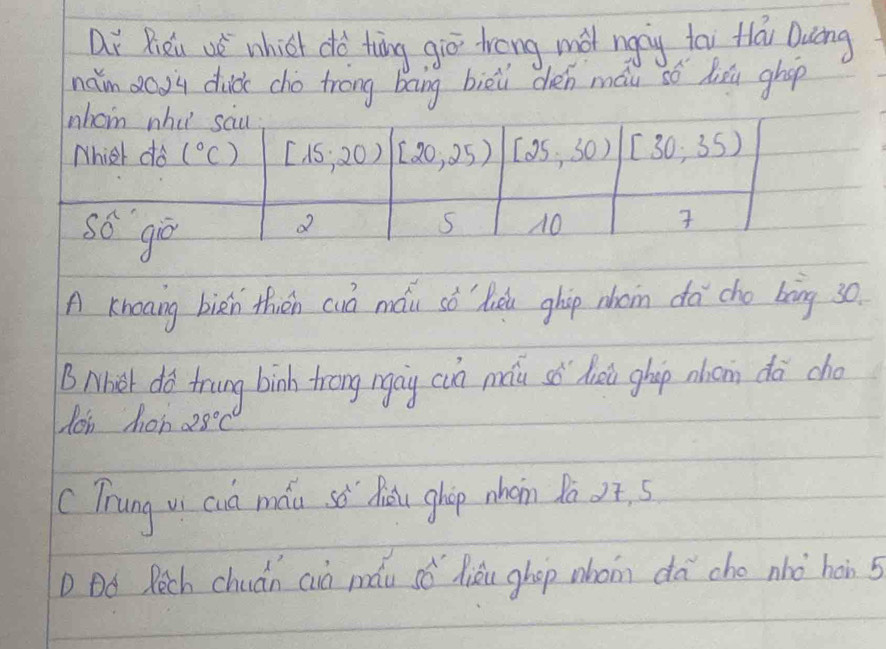 Dữ liệu về nhiệt độ từng giờ trong một ngày tại Hải Dương
năm 2024 được cho trong bảng biểu diễn mẫu số liệu ghép
nhóm như sau
Nhiệt độ (°C) [15;20) [20;25) [25;30) [30;35)
Số giờ 2 5 10 7
A Khoảng biến thiên của mẫu số liệu ghép nhóm đã cho bằng 30.
B Nhiệt độ trung bình trong ngày của mẫu số liệu ghép nhóm đã cho
lớn hơn 28°C
C Trung vị của mẫu số liệu ghép nhóm là 27,5
D Độ lệch chuẩn của mẫu số liệu ghép nhóm đã cho nhỏ hơn 5